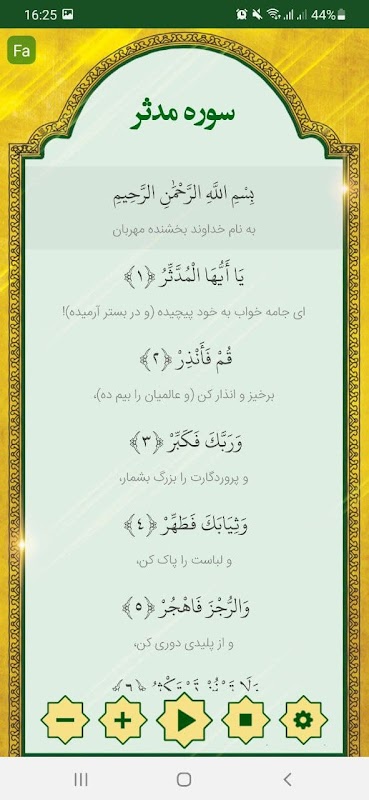 16:25
44%
Fa
سوره مدثر
بِسْمِ اللَّهِ الرَّحْمَٰنِ الرَّحِيمِ
به نام خداوند بخشنده مهربان
يَا أَيُّهَا الْمُدَّثِّرُ ﴿١﴾
ای جامه خواب به خود پیچیده (و در بستر آرمیده)!
قُمْ فَأَنْذِرْ ﴿٢﴾
برخیز و انذار کن (و عالمیان را بیم ده)،
وَرَبَّكَ فَكَبِّرْ ﴿٣﴾
و پروردگارت را بزرگ بشمار،
وَثِيَابَكَ فَطَهِّرْ ﴿٤﴾
و لباست را پاک کن،
وَالرُّجْزَ فَاهْجُرْ ﴿٥﴾
و از پلیدی دوری کن،